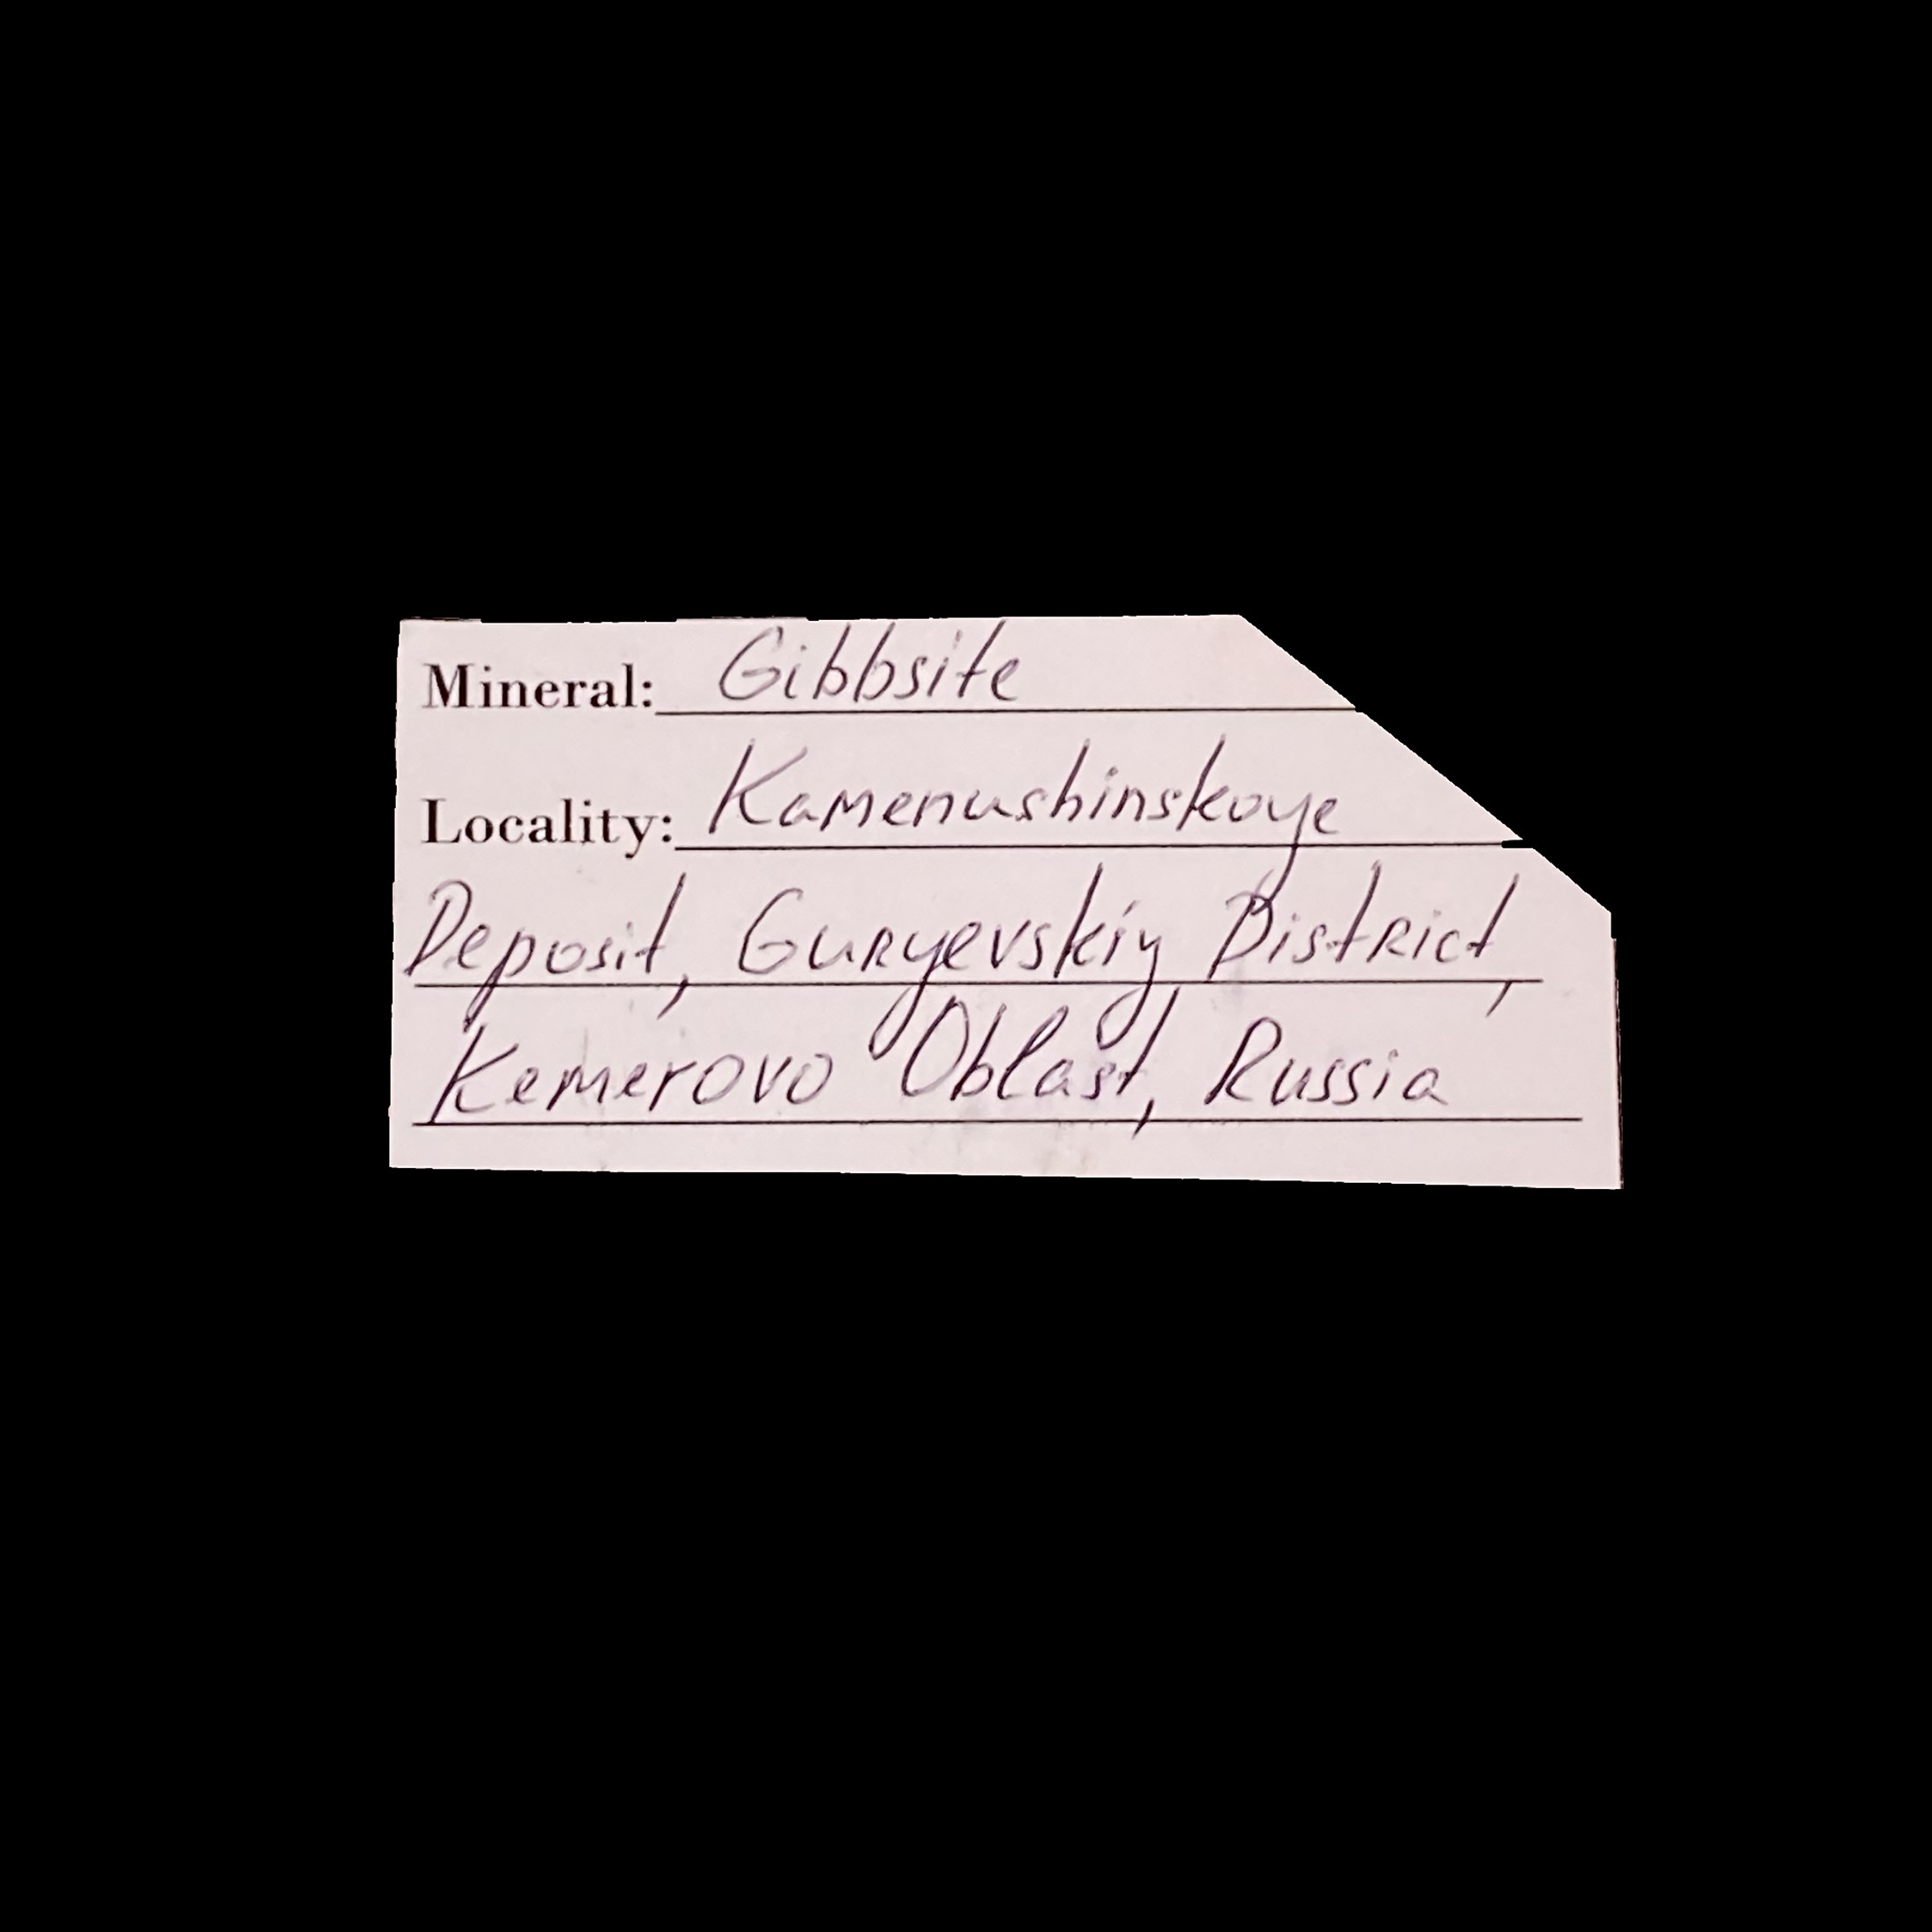 Mineral: Gibbsite
Locality: Kamenushinskoye
Deposit, Guryevskiy District,
Kemerovo Oblast, Russia